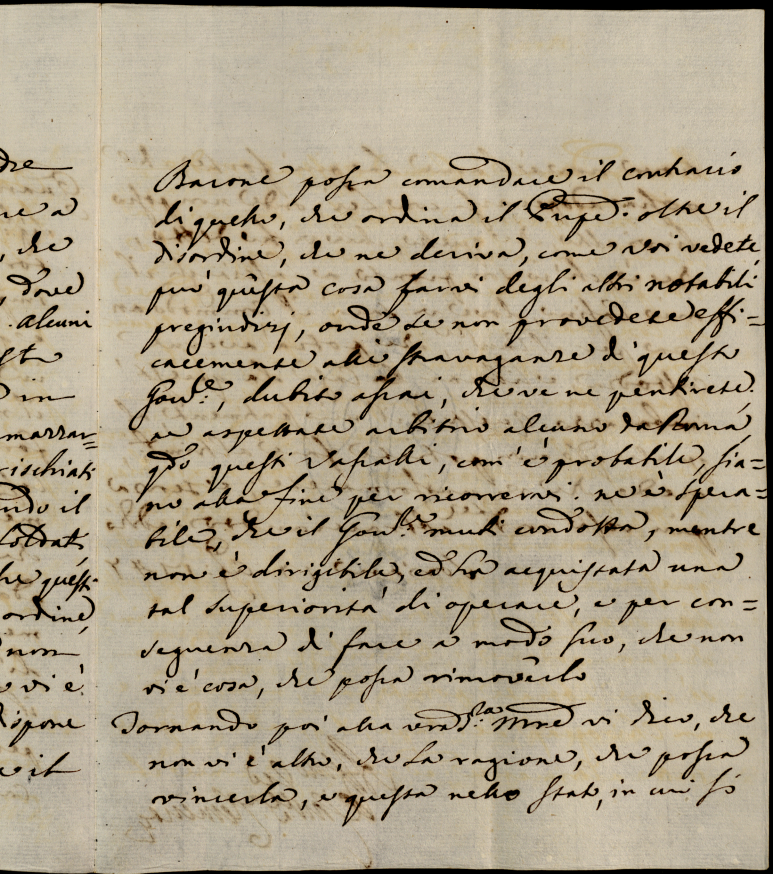 dre
ne a
, che
, dove
. alcuni
st
in
mazzar=
rischiati
ndo il
Soldati
he questi
ordine
non
e vi è
dispone
e il
Barone possa comandare il contrario
di quello, che ordina il Supe.e oltre il
disordine, che ne deriva, come voi vedete,
può questa cosa farvi degli altri notabili
pregiudizj, onde se non provedete effi=
cacemente alle stravaganze di questo
Gov.e, dubito assai, che ve ne pentirete.
ne aspettate arbitrio alcuno da Roma,
qdo questi Vassalli, com'è probabile, sia=
no alla fine per ricorrervi. ne è spera=
bile, che il Gov.re muti condotta, mentre
non è dirigibile, ed ha acquistata una
tal superiorità di operare, e per con=
seguenza di fare a modo suo, che non
vi è cosa, che possa rimoverlo
Tornando poi alla vra S.ta Mre vi dico, che
non vi è altro, che la ragione, che possa
vincerla, e questa nello stato, in cui si